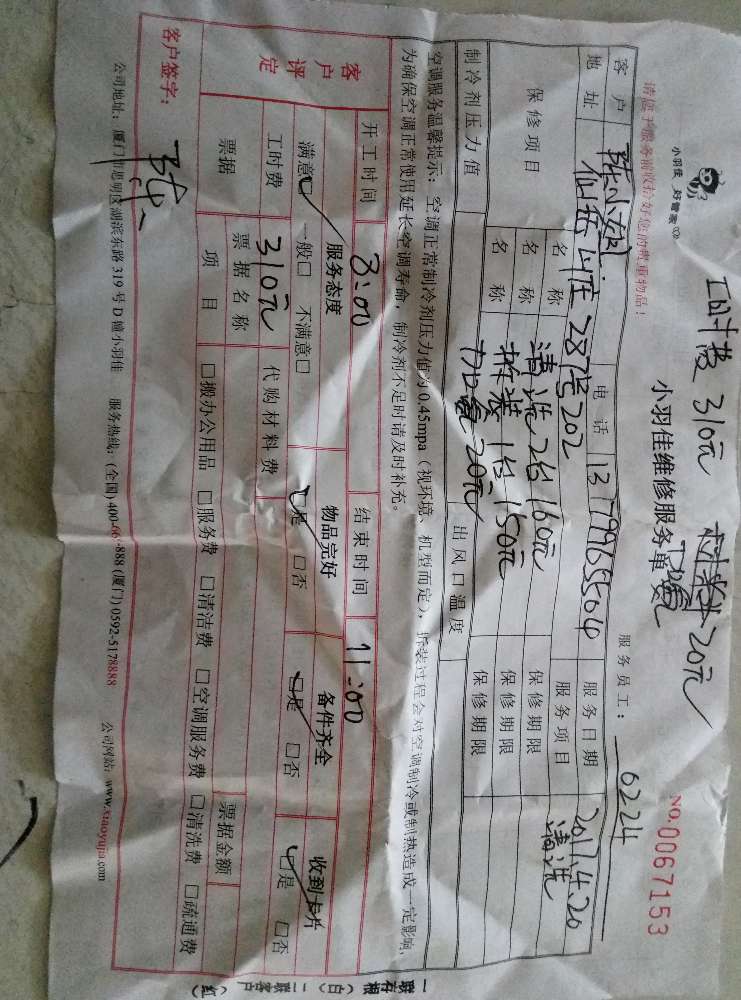 工时费 310元 材料费 20元
加氟
小羽佳 好管家
小羽佳维修服务单
NO.0067153
请您于服务前收拾好您的贵重物品！
服务员工： 6224
客户 陈小姐 电话 13799765504 服务日期 2017.4.20
地址 仙岳山庄28号202 服务项目 清洗
保修项目 名称 清洗2台160元 保修期限
名称 拆装1台150元 保修期限
名称 加氟20元 保修期限
制冷剂压力值 出风口温度
空调服务温馨提示：空调正常制冷剂压力值为0.45mpa（视环境、机型而定），拆装过程会对空调制冷或制热造成一定影响，
为确保空调正常使用延长空调寿命，制冷剂不足时请及时补充。
开工时间 8:00 结束时间 11:00
客户评定 服务态度 物品完好 备件齐全 收到卡片
满意□ 一般□ 不满意□ □是 □否 □是 □否 □是 □否
工时费 310元 代购材料费
票据 票据名称 票据金额
项目 □搬办公用品 □服务费 □清洁费 □空调服务费 □清洗费 □疏通费
客户签字： 陈
公司地址：厦门市思明区湖滨东路319号D幢小羽佳 服务热线：(全国)400-66-888 (厦门)0592-5178888 公司网站：www.xiaoyujia.com
一联存根（白）二联客户（红）